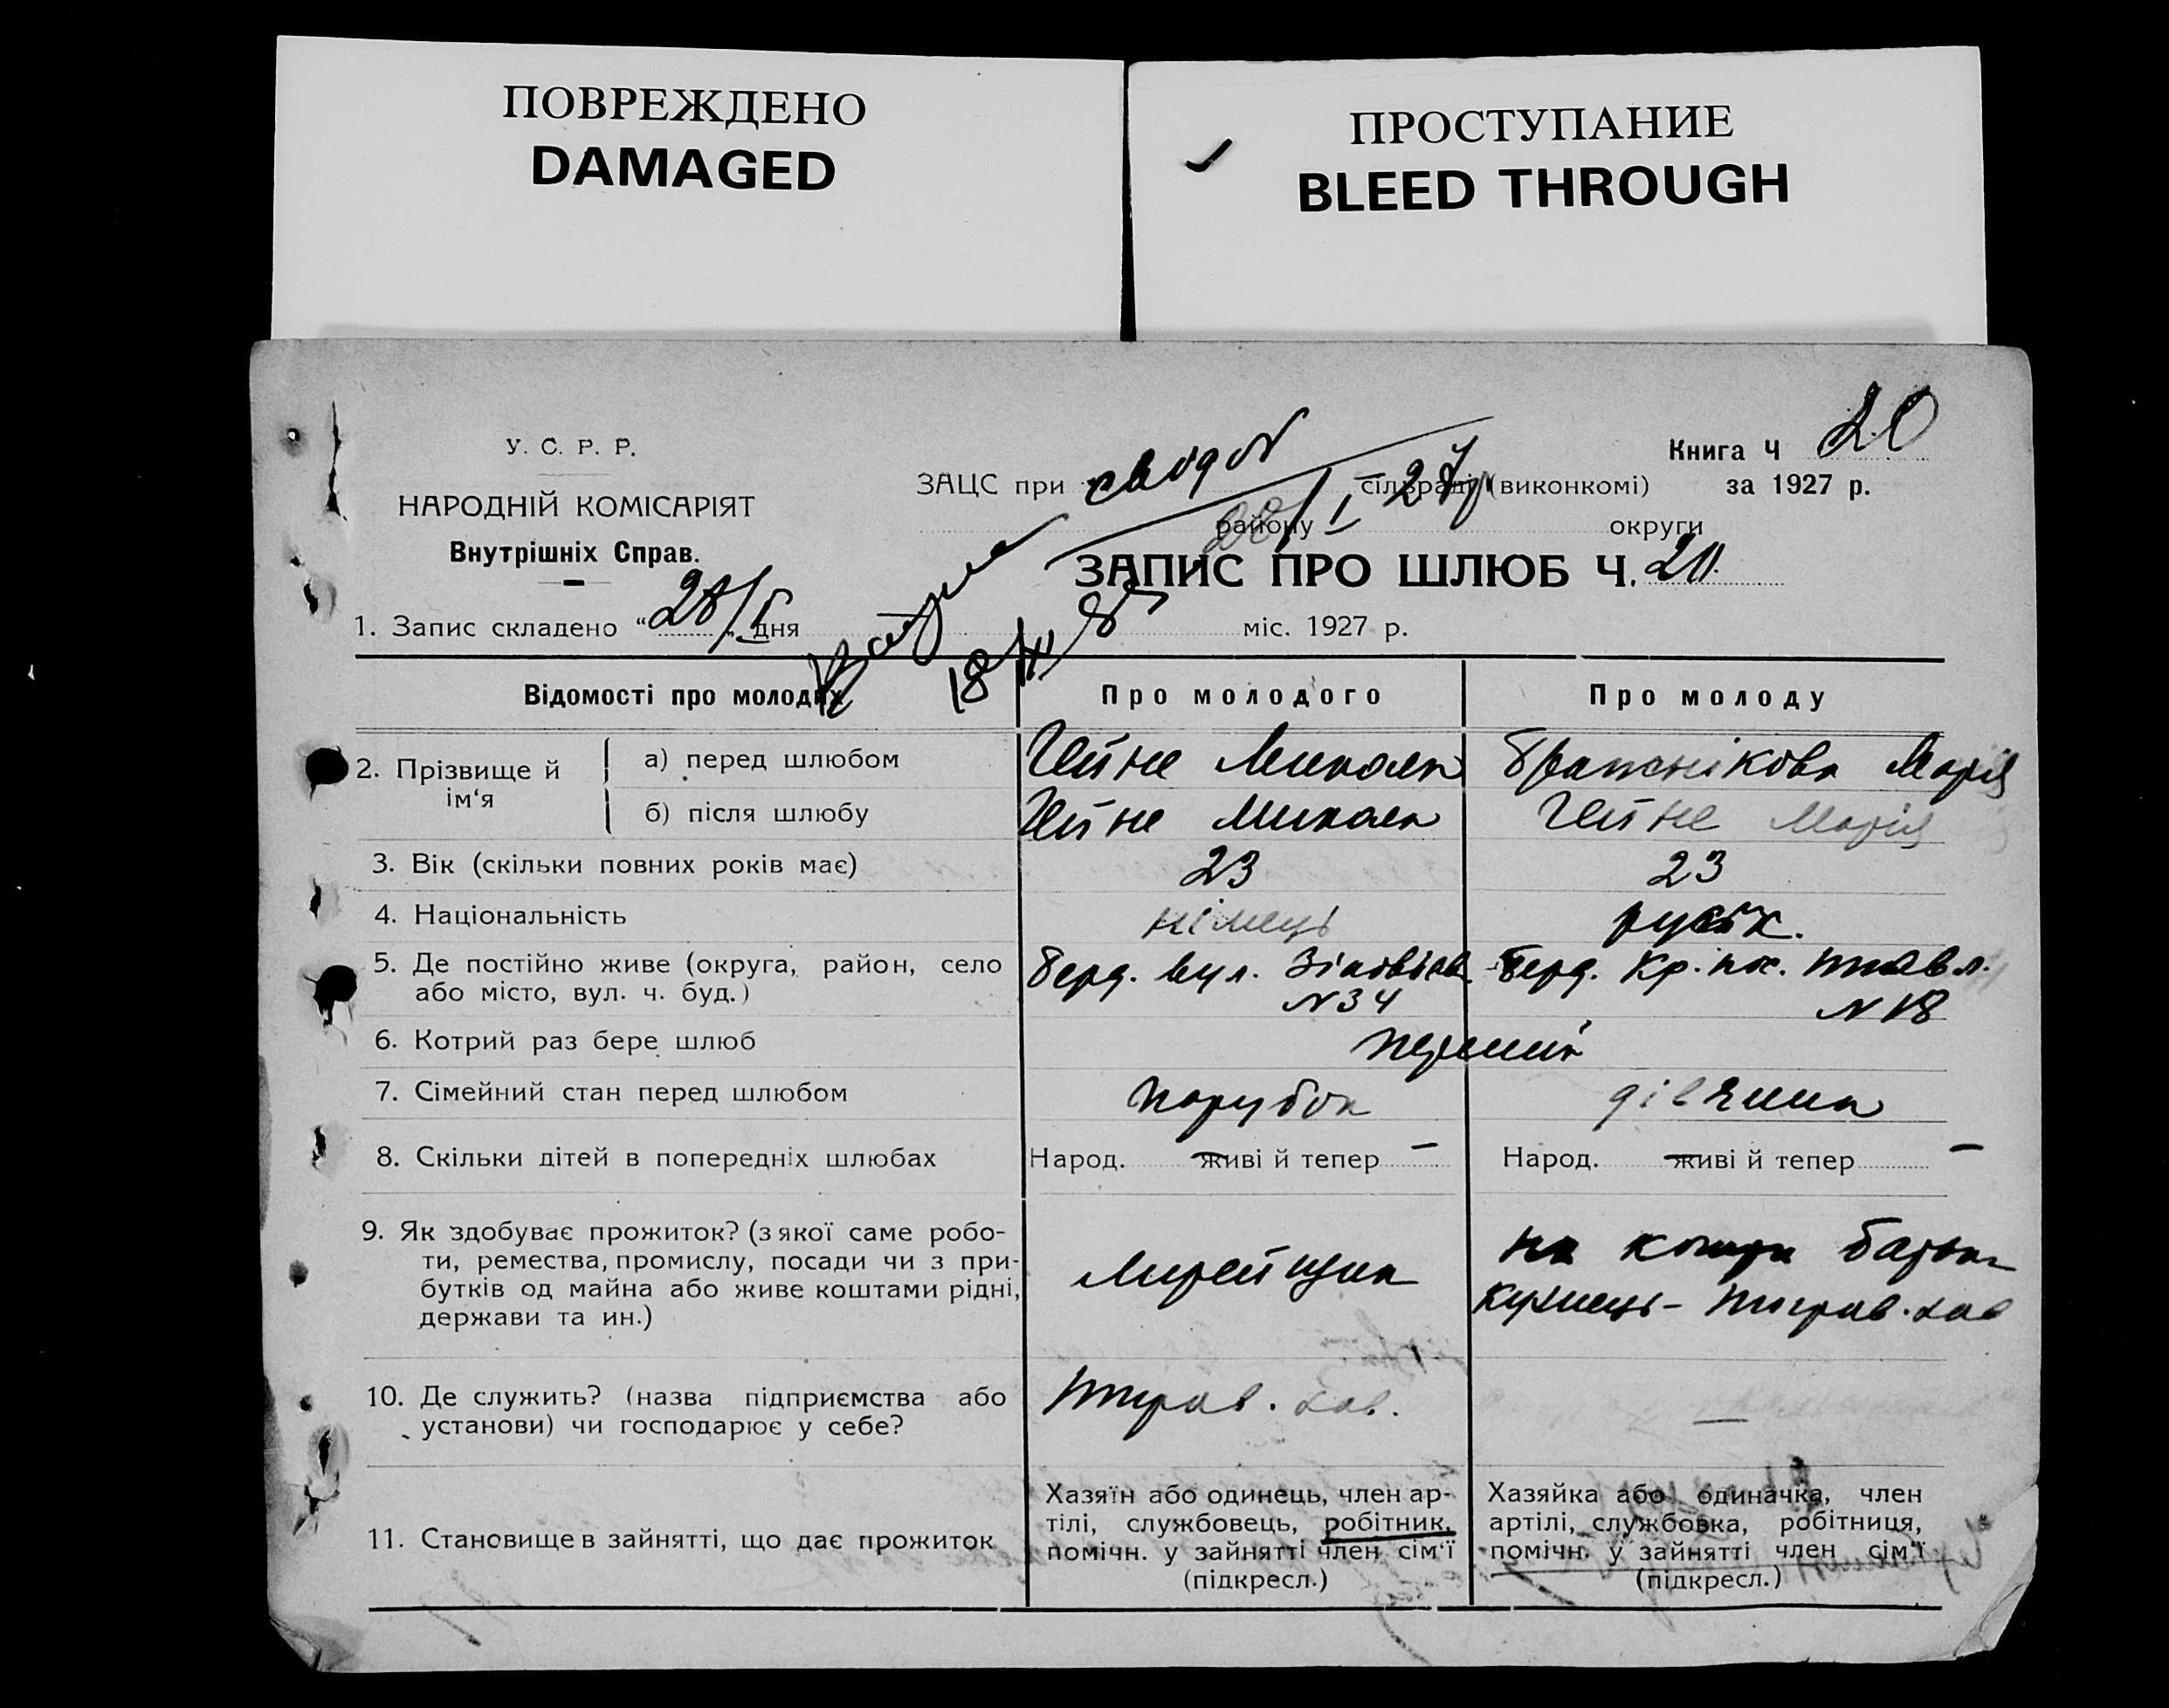 ПОВРЕЖДЕНО
DAMAGED
ПРОСТУПАНИЕ
BLEED THROUGH
У. С. Р. Р.
НАРОДНІЙ КОМІСАРІЯТ
Внутрішніх Справ.
Книга Ч 20
ЗАЦС при сільраді (виконкомі) за 1927 р.
району округи
28/I 27р
ЗАПИС ПРО ШЛЮБ Ч. 20
1. Запис складено “28/I„ дня міс. 1927 р.
Відомості про молодих
Про молодого
Про молоду
2. Прізвище й ім‘я
а) перед шлюбом
Гейне Микола
Бражнікова Марія
б) після шлюбу
Гейне Микола
Гейне Марія
3. Вік (скільки повних років має)
23
23
4. Національність
німець
руськ.
5. Де постійно живе (округа, район, село
або місто, вул. ч. буд.)
Берд. вул.
N 34
Берд. Кр.
N 18
6. Котрий раз бере шлюб
перший
7. Сімейний стан перед шлюбом
парубок
дівчина
8. Скільки дітей в попередніх шлюбах
Народ. — живі й тепер —
Народ. — живі й тепер —
9. Як здобуває прожиток? (з якої саме робо-
ти, ремества, промислу, посади чи з при-
бутків од майна або живе коштами рідні,
держави та ин.)
на кошти батька
кузнець -
10. Де служить? (назва підприємства або
установи) чи господарює у себе?
—
11. Становище в зайнятті, що дає прожиток
Хазяїн або одинець, член ар-
тілі, службовець, робітник,
помічн. у зайнятті член сім‘ї
(підкресл.)
Хазяйка або одиначка, член
артілі, службовка, робітниця,
помічн. у зайнятті член сім‘ї
(підкресл.)